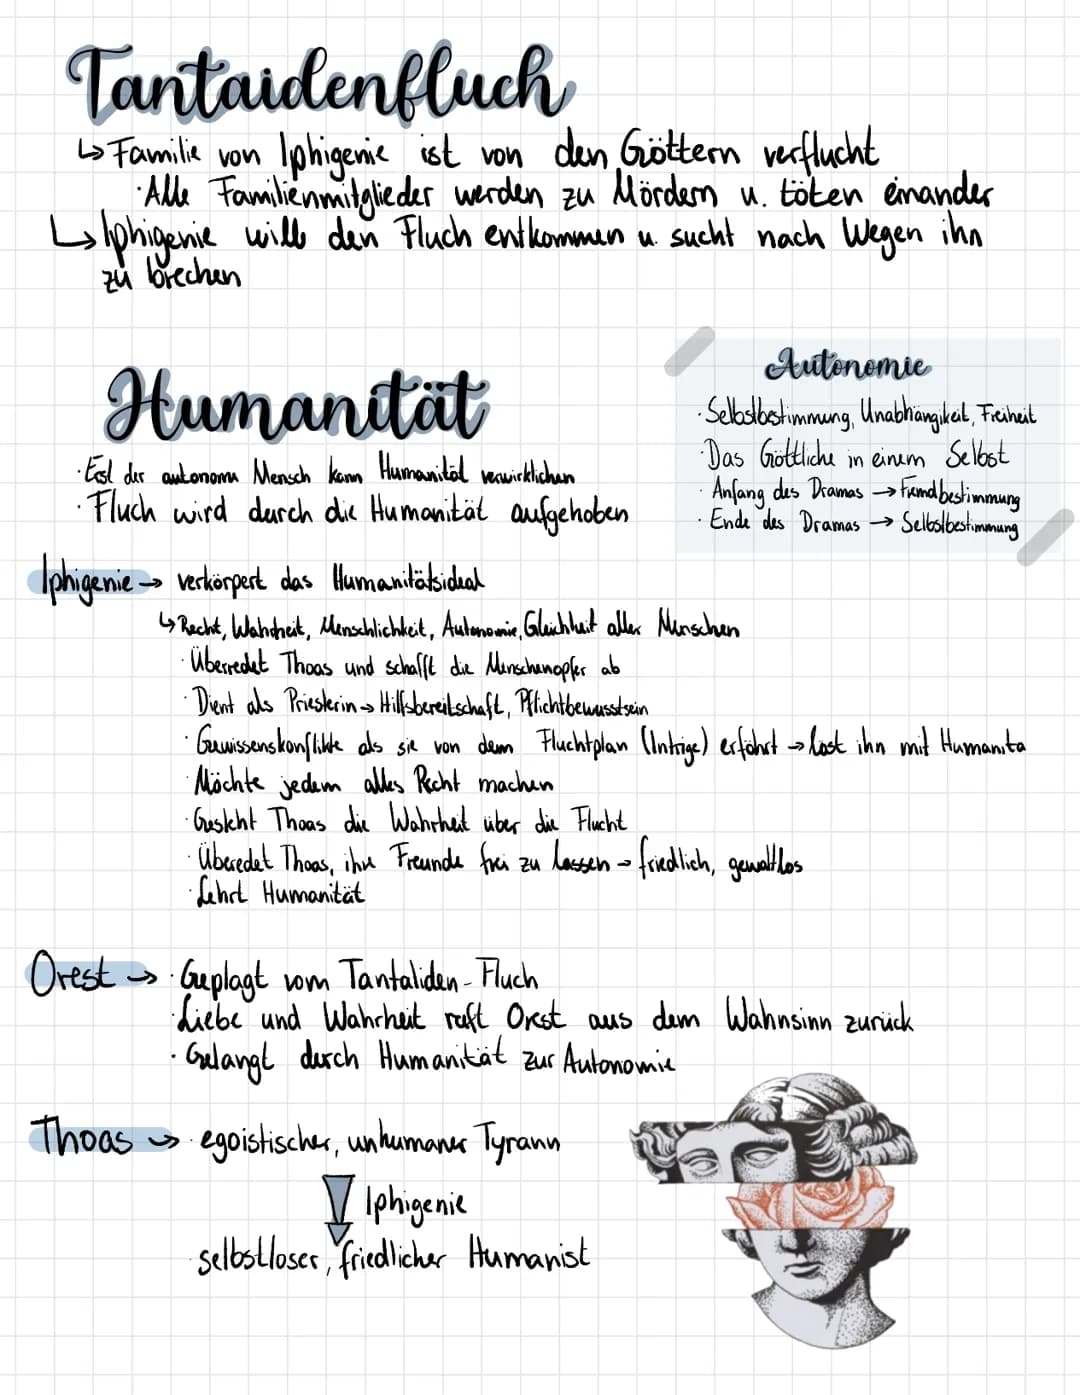 Tantaidenfluch
↳ Familie von Iphigenie ist von den Göttern verflucht
· Alle Familienmitglieder werden zu Mördern u. töten einander
↳ Iphigenie will den Fluch entkommen u. sucht nach Wegen ihn
zu brechen
Humanität
· Erst der autonome Mensch kann Humanität verwirklichen
· Fluch wird durch die Humanität aufgehoben
Autonomie
· Selbstbestimmung, Unabhängikeit, Freiheit
· Das Göttliche in einem Selbst
· Anfang des Dramas → Fremdbestimmung
· Ende des Dramas → Selbstbestimmung
Iphigenie → verkörpert das Humanitätsideal
↳ Recht, Wahrheit, Menschlichkeit, Autonomie, Gleichheit aller Menschen
· Überredet Thoas und schafft die Menschenopfer ab
· Dient als Priesterin → Hilfsbereitschaft, Pflichtbewusstsein
· Gewissenskonflikte als sie von dem Fluchtplan (Intrige) erfährt → löst ihn mit Humanita
· Möchte jedem alles Recht machen
· Gesteht Thoas die Wahrheit über die Flucht
· Überedet Thoas, ihre Freunde frei zu lassen → friedlich, gewaltlos
· Lehrt Humanität
Orest → · Geplagt vom Tantaliden-Fluch
· Liebe und Wahrheit ruft Orest aus dem Wahnsinn zurück
· Gelangt durch Humanität zur Autonomie
Thoas → · egoistischer, unhumaner Tyrann
Iphigenie
selbstloser, friedlicher Humanist